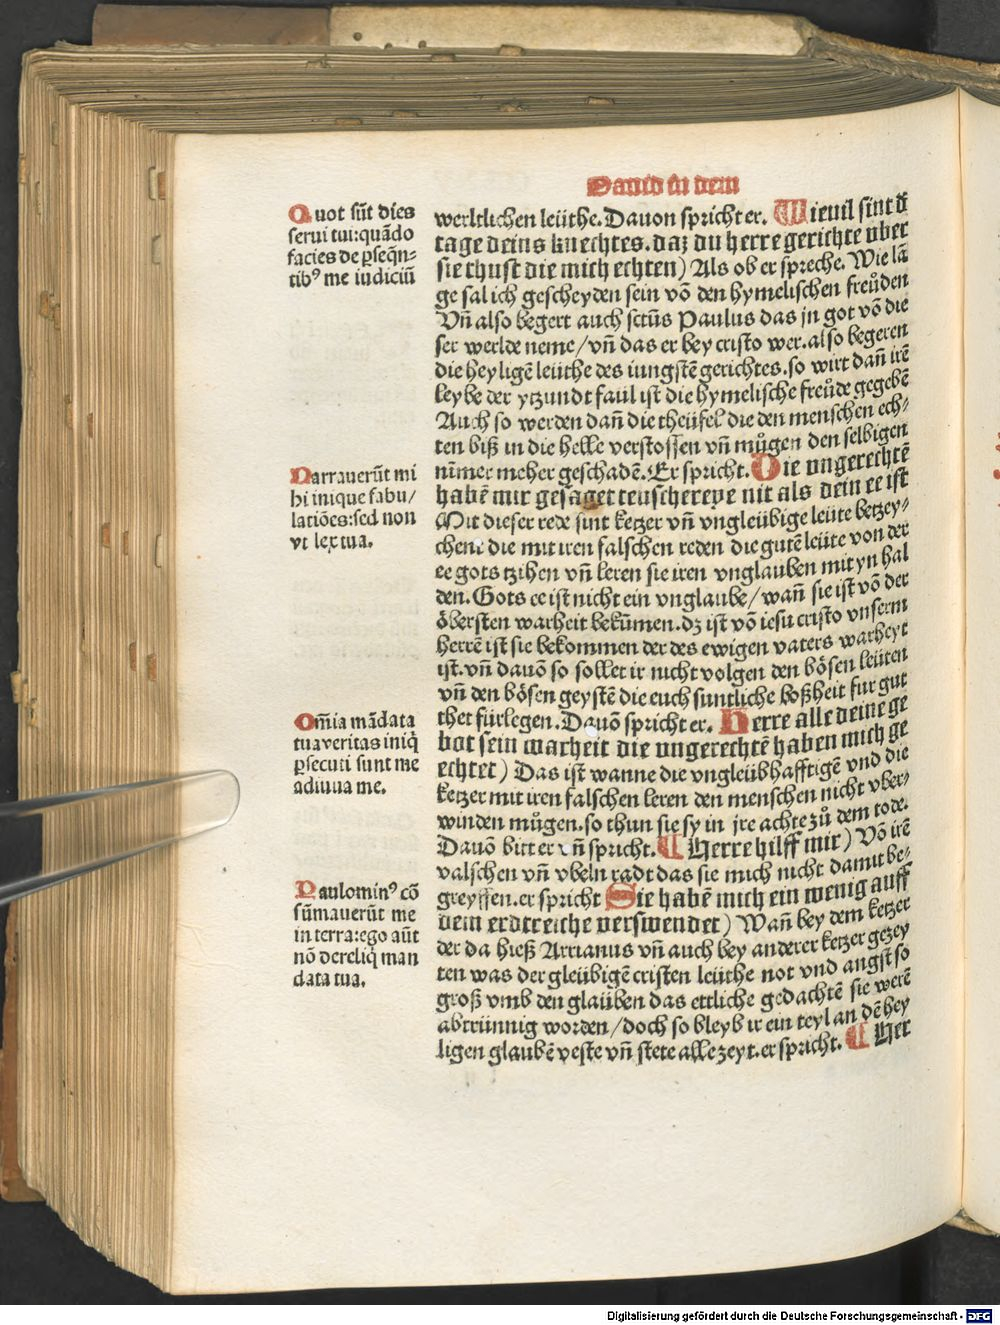 Dauid in dem
Quot sūt dies
serui tui:quādo
facies de ꝑseqn̄-
tibꝰ me iudiciū
Narrauerūt mi
hi inique fabu/
latiōes:sed non
vt lex tua.
Om̄ia mādata
tua veritas iniq̄
ꝑsecuti sunt me
adiuua me.
Paulominꝰ cō
sūmauerūt me
in terra:ego aūt
nō dereliq̄ man
data tua.
werltlichen leüthe.Dauon spricht er. Wieuil sint d̄
tage deins knechtes.daz du herre gerichte vber
sie thust die mich echten) Als ob er spreche. Wie lā
ge sal ich gescheyden sein vō den hymelischen freůden
Vn̄ also begert auch sctūs Paulus das jn got vō die
ser werlde neme/vn̄ das er bey cristo wer.also begeren
die heyligē leüthe des iungstē gerichtes.so wirt dan̄ irē
leybe der ytzundt faul ist die hymelische freůde gegebē
Auch so werden dan̄ die theüfel die den menschen ech/
ten biß in die helle verstossen vn̄ můgen den selbigen
nūmer meher geschadē.Er spricht. Die vngerechtē
habē mir gesaget teuschereye nit als dein ee ist
Mit dieser rede sint ketzer vn̄ vngleübige leüte betzey/
chent die mit iren falschen reden die gutē leüte von der
ee gots tzihen vn̄ leren sie iren vnglauben mit yn hal
den.Gots ee ist nicht ein vnglaube/wan̄ sie ist vō der
öbersten warheit bekūmen.dz ist vō iesu cristo vnserm
herrē ist sie bekommen der des ewigen vaters warheyt
ist.vn̄ dauō so sollet ir nicht volgen den bösen leüten
vn̄ den bösen geystē die euch suntliche boßheit fur gut
thet fürlegen.Dauō spricht er. Herre alle deine ge
bot sein warheit die vngerechtē haben mich ge
echtet) Das ist wanne die vngleübhafftigē vnd die
ketzer mit iren falschen leren den menschen nicht vber/
winden můgen.so thun sie sy in jre achte zů dem tode.
Dauō bitt er vn̄ spricht. ¶ Herre hilff mir) Vō irē
valschen vn̄ vbeln radt das sie mich nicht damit be/
greyffen.er spricht Sie habē mich ein wenig auff
dem erdtreiche verswendet) Wan̄ bey dem ketzer
der da hieß Arrianus vn̄ auch bey anderer ketzer gezey
ten was der gleübigē cristen leüthe not vnd angst so
groß vmb den glaüben das ettliche gedachtē sie werē
abtrünnig worden/doch so bleyb ir ein teyl an dē hey
ligen glaubē veste vn̄ stete alle zeyt.er spricht. ¶ Her
Digitalisierung gefördert durch die Deutsche Forschungsgemeinschaft - DFG